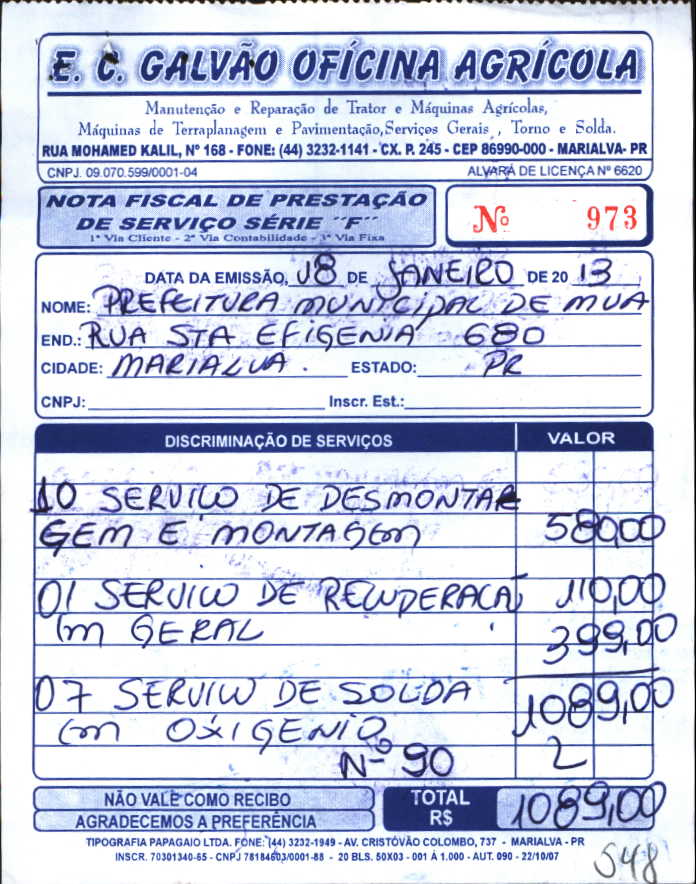 E. C. GALVÃO OFÍCINA AGRÍCOLA
Manutenção e Reparação de Trator e Máquinas Agrícolas,
Máquinas de Terraplanagem e Pavimentação, Serviços Gerais , Torno e Solda.
RUA MOHAMED KALIL, Nº 168 - FONE: (44) 3232-1141 - CX. P. 245 - CEP 86990-000 - MARIALVA- PR
CNPJ. 09.070.599/0001-04 ALVARÁ DE LICENÇA Nº 6620
NOTA FISCAL DE PRESTAÇÃO
DE SERVIÇO SÉRIE "F"
1ª Via Cliente - 2ª Via Contabilidade - 3ª Via Fixa
Nº 973
DATA DA EMISSÃO, 08 DE JANEIRO DE 20 13
NOME: PREFEITURA MUNICIPAL DE MVA
END.: RUA STA EFIGENIA 680
CIDADE: MARIALVA . ESTADO: PR
CNPJ: Inscr. Est.:
DISCRIMINAÇÃO DE SERVIÇOS VALOR
10 SERVIÇO DE DESMONTA
GEM E MONTAGEM 580,00
01 SERVIÇO DE RECUPERAÇÃO 110,00
EM GERAL 399,00
07 SERVIÇO DE SOLDA 1089,00
EM OXIGENIO
Nº 90
NÃO VALE COMO RECIBO
AGRADECEMOS A PREFERÊNCIA
TOTAL R$ 1089,00
TIPOGRAFIA PAPAGAIO LTDA. FONE: (44) 3232-1949 - AV. CRISTÓVÃO COLOMBO, 737 - MARIALVA - PR
INSCR. 70301340-55 - CNPJ 78184603/0001-88 - 20 BLS. 50X03 - 001 À 1.000 - AUT. 090 - 22/10/07
548